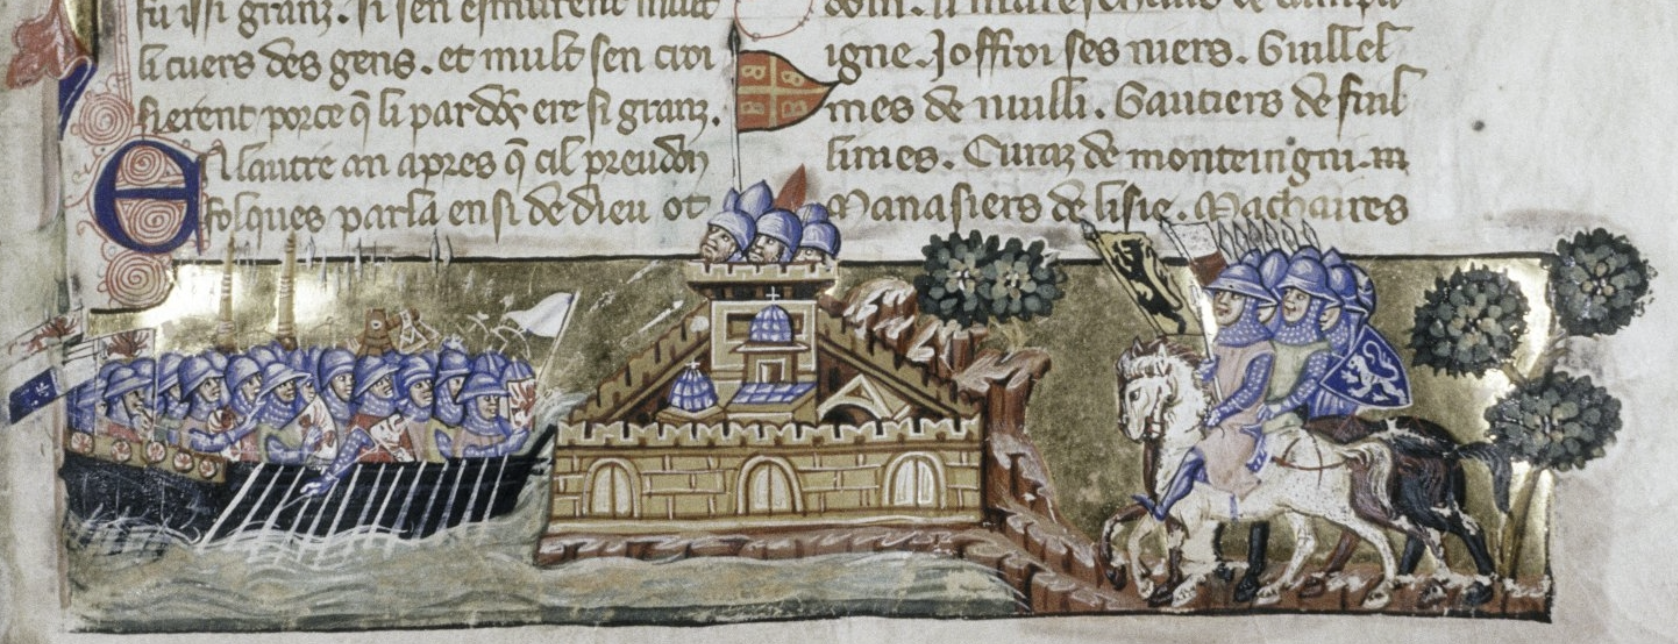 fu issi granz. si sen esmurent mult
li cuers des gens. et mult sen croi
sierent porce q̃ li pardõs ere si granz.
EN lautre an apres q̃ cil preudon
folques parla ensi de dieu ot
doin. li mareschaus de campa
igne. Joffroi ses niers. Guillel
mes de nuilli. Gautiers de fuil
limes. Curaz de monteingni.
Manasiers de lisle. Machaires